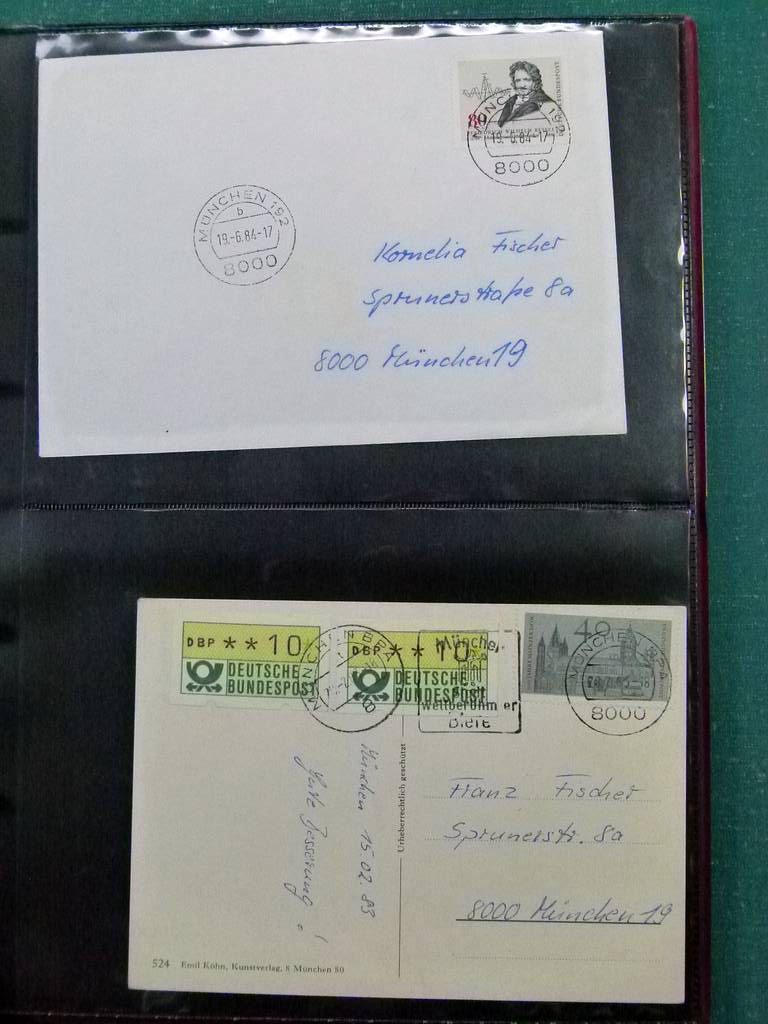 80
BUNDESPOST
MÜNCHEN 192
19.-6.84-17
8000
MÜNCHEN 192
b
19.-6.84-17
8000
Kornelia Fischer
Sprunerstraße 8a
8000 München 19
DBP **10
DEUTSCHE
BUNDESPOST
DBP **10
DEUTSCHE
BUNDESPOST
MÜNCHEN BPA
München
weltberühmter
Biere
40
MÜNCHEN BPA
8000
München 15.02.83
Gute Besserung!
Urheberrechtlich geschützt
Franz Fischer
Sprunerstr. 8a
8000 München 19
524 Emil Köhn, Kunstverlag, 8 München 80